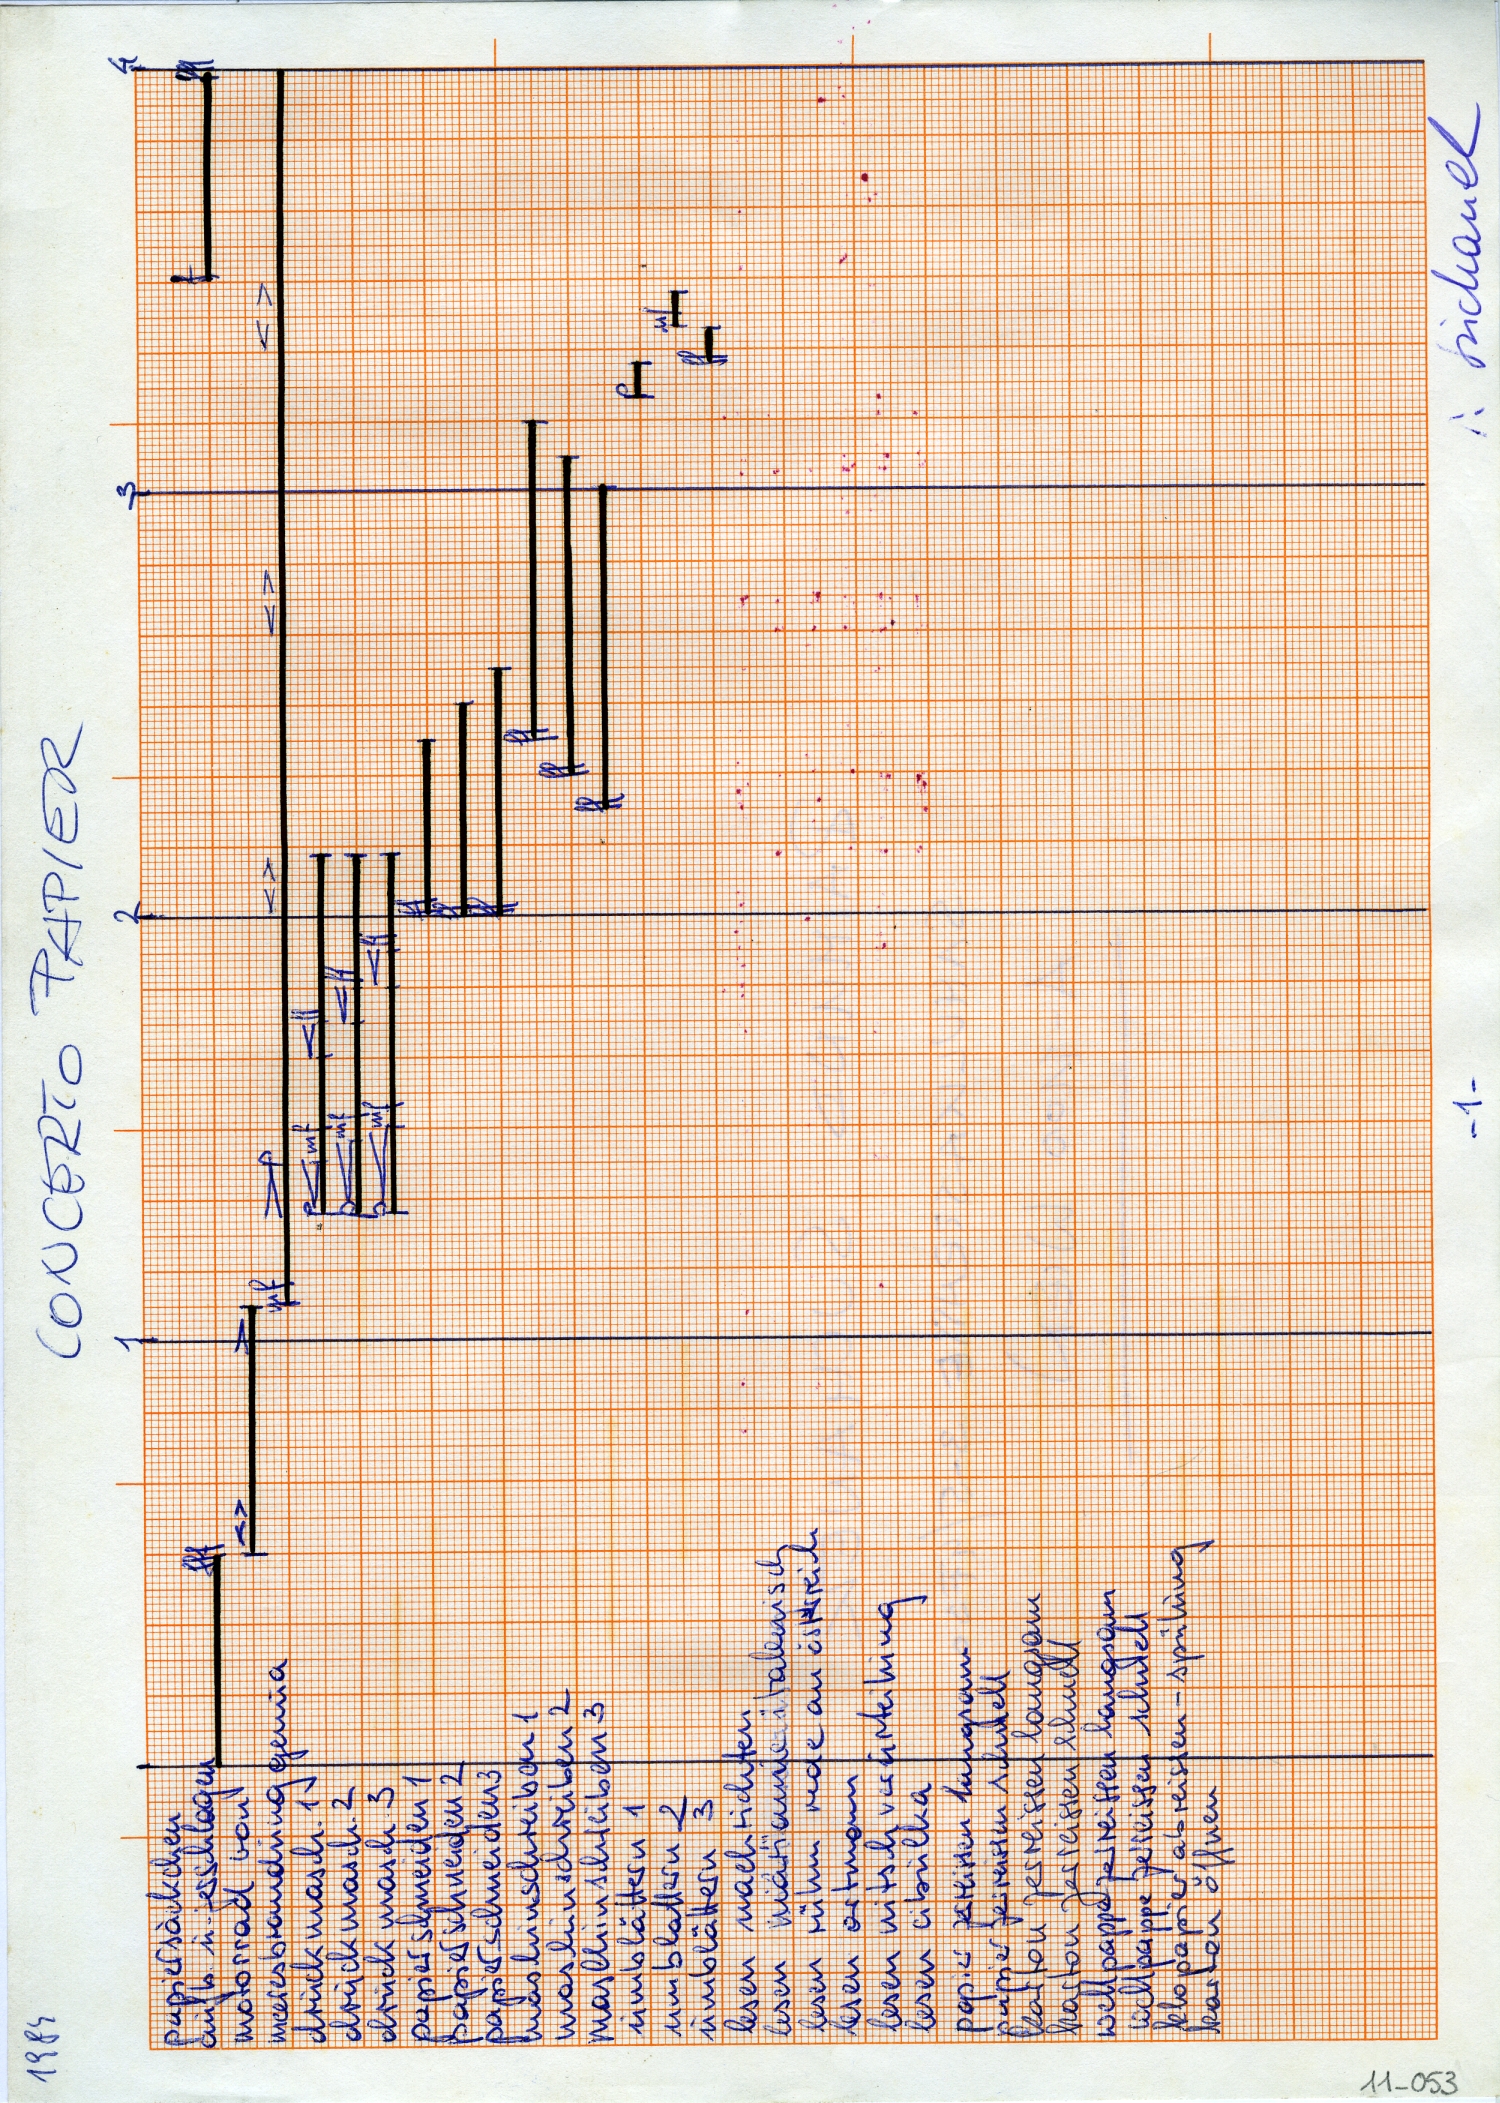 1984
CONCERTO PAPIER
1 2 3 4
papiersäckchen
aufb. u. zerschlagen
motorrad von
meeresbrandung genua
druckmasch. 1
druckmasch. 2
druckmasch. 3
papierschneiden 1
papierschneiden 2
papierschneiden 3
maschinschreiben 1
maschinschreiben 2
maschinschreiben 3
umblättern 1
umblättern 2
umblättern 3
lesen nachrichten
lesen italienisch
lesen rühm rede an österreich
lesen artmann
lesen nitsch verurteilung
lesen cibulka
papier zereissen langsam
papier zereissen schnell
karton zerreissen langsam
karton zerreissen schnell
wellpappe zerreissen langsam
wellpappe zerreissen schnell
klopapier abreissen - spülung
karton öffnen
fff
mf
p
p < mf < ff
p < mf < ff
p < mf < ff
ff
ff
ff
ff
ff
ff
p
mf
ff
f
fff
-1-
11-053